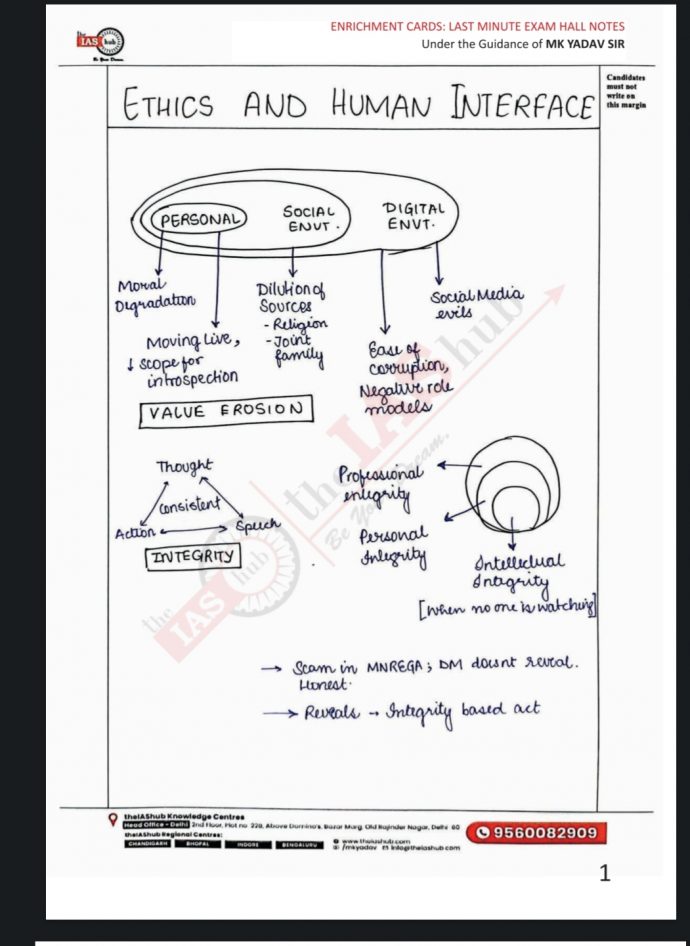 ENRICHMENT CARDS: LAST MINUTE EXAM HALL NOTES
Under the Guidance of MK YADAV SIR
the
IAS hub
Be Your Dream.
Candidates
must not
write on
this margin
ETHICS AND HUMAN INTERFACE
PERSONAL
SOCIAL
ENVT.
DIGITAL
ENVT.
Moral
Degradation
Moving Live,
↓ scope for
introspection
Dilution of
Sources
- Religion
- Joint
family
Ease of
corruption,
Negative role
models
Social Media
evils
VALUE EROSION
Thought
Consistent
Action
Speech
INTEGRITY
Professional
integrity
Personal
Integrity
Intellectual
Integrity
[When no one is watching]
→ Scam in MNREGA; DM doesnt reveal.
Honest.
→ Reveals → Integrity based act
the IAS hub
Be Your Dream.
the IAS hub
theIAShub Knowledge Centres
Head Office - Delhi 2nd Floor, Plot no. 220, Above Domino's, Bazar Marg, Old Rajinder Nagar, Delhi 60
theIAShub Regional Centres:
CHANDIGARH BHOPAL INDORE BENGALURU
www.theiashub.com
/mkyadav info@theiashub.com
9560082909
1